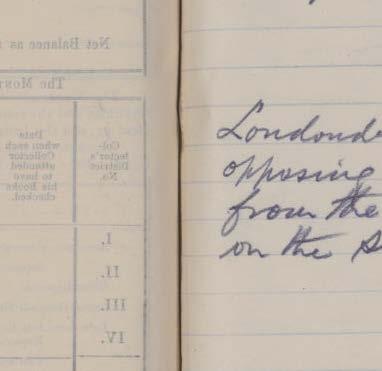 Net Balance as
The Most
Date
when each
Collector
attended
to have
his Books
checked.
Col-
lector's
District
No.
I.
II.
III.
IV.
Londond
opposing
from the
on the S